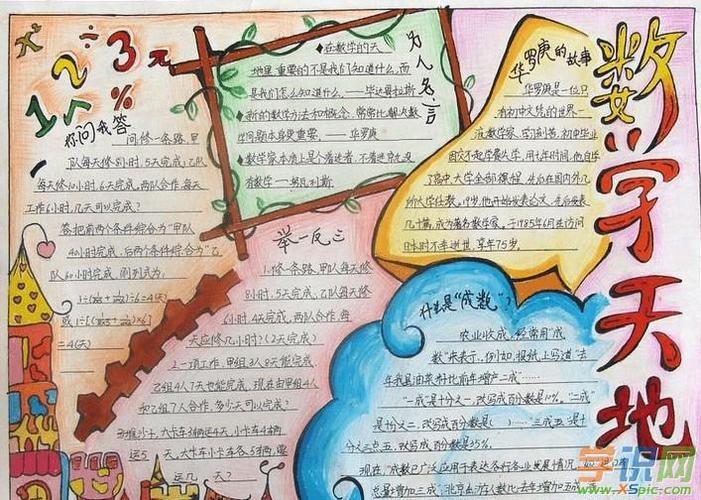 数学天地
1 2 3 元
÷
%
你问我答
问修一条路,甲
队每天修8小时,5天完成;乙队
每天修10小时,6天完成,两队合作,每天
工作6小时,几天可以完成?
答把前两个条件综合为"甲队
40小时完成,后两个条件综合为"乙
队60小时完成,则列式为:
=4(天)
在数学的天
地里,重要的不是我们知道什么,而
是我们怎么知道什么.——毕达哥拉斯
新的数学方法和概念,常常比解决数
学问题本身更重要.——华罗庚
数学家本质上是个着迷者,不着迷就没
有数学.——努瓦利斯
名言
举一反三
1.修一条路,甲队每天修
8小时,5天完成;乙队每天修
6小时,4天完成,两队合作,每
天应修几小时?(2天完成)
2.一项工作,甲组3人8天能完成
乙组4人7天也能完成,现在由甲组4人
和乙组7人合作,多少天可以完成?
沙子,大卡车3辆运4天,小卡车4辆
运5天,大卡车小卡车各5辆,要
运几天?
华罗庚的故事
华罗庚是一位只
有初中文凭的世界一
流数学家,学习刻苦,初中毕业
因交不起学费失学,用七年时间,他自学
了高中大学全部课程,先后在国内外几
所大学任教,19岁,他开始发表论文,先后发表
几十篇,成为著名数学家,于1985年6月在访问
日本时不幸逝世,享年75岁.
什么是"成数"?
农业收成,经常用"成
数"来表示,例如,报纸上写道"去
年我县油菜籽比前年增产二成"……
"一成"是十分之一,改写成百分数是10%,"二成"
是十分之二,改写成百分数是( )……三成五"是十
分之三点五,改写成百分数是35%.
现在,"成数"已广泛应用于表达各行各业发展情况,如
总量增加三成",北京出
学识网
www.XSpic.com